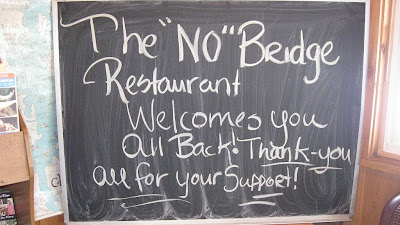 The "NO" Bridge
Restaurant
Welcomes you
All Back! Thank-you
all for your Support!